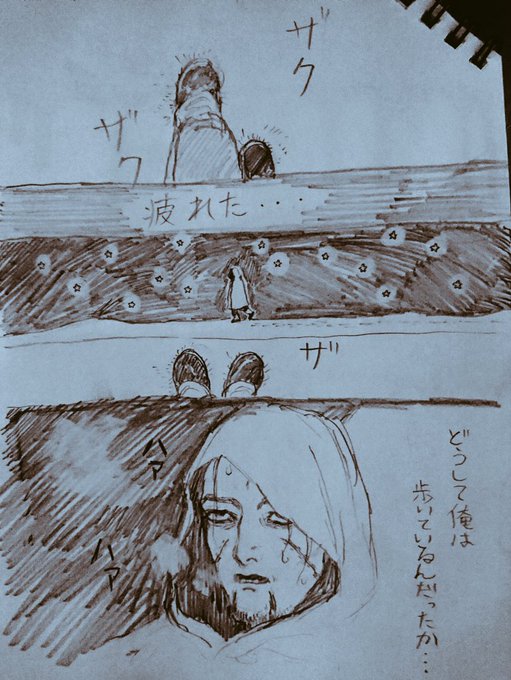 ザク
ザク
疲れた・・・
ザ
どうして俺は
歩いているんだったか・・・
ハァ
ハァ